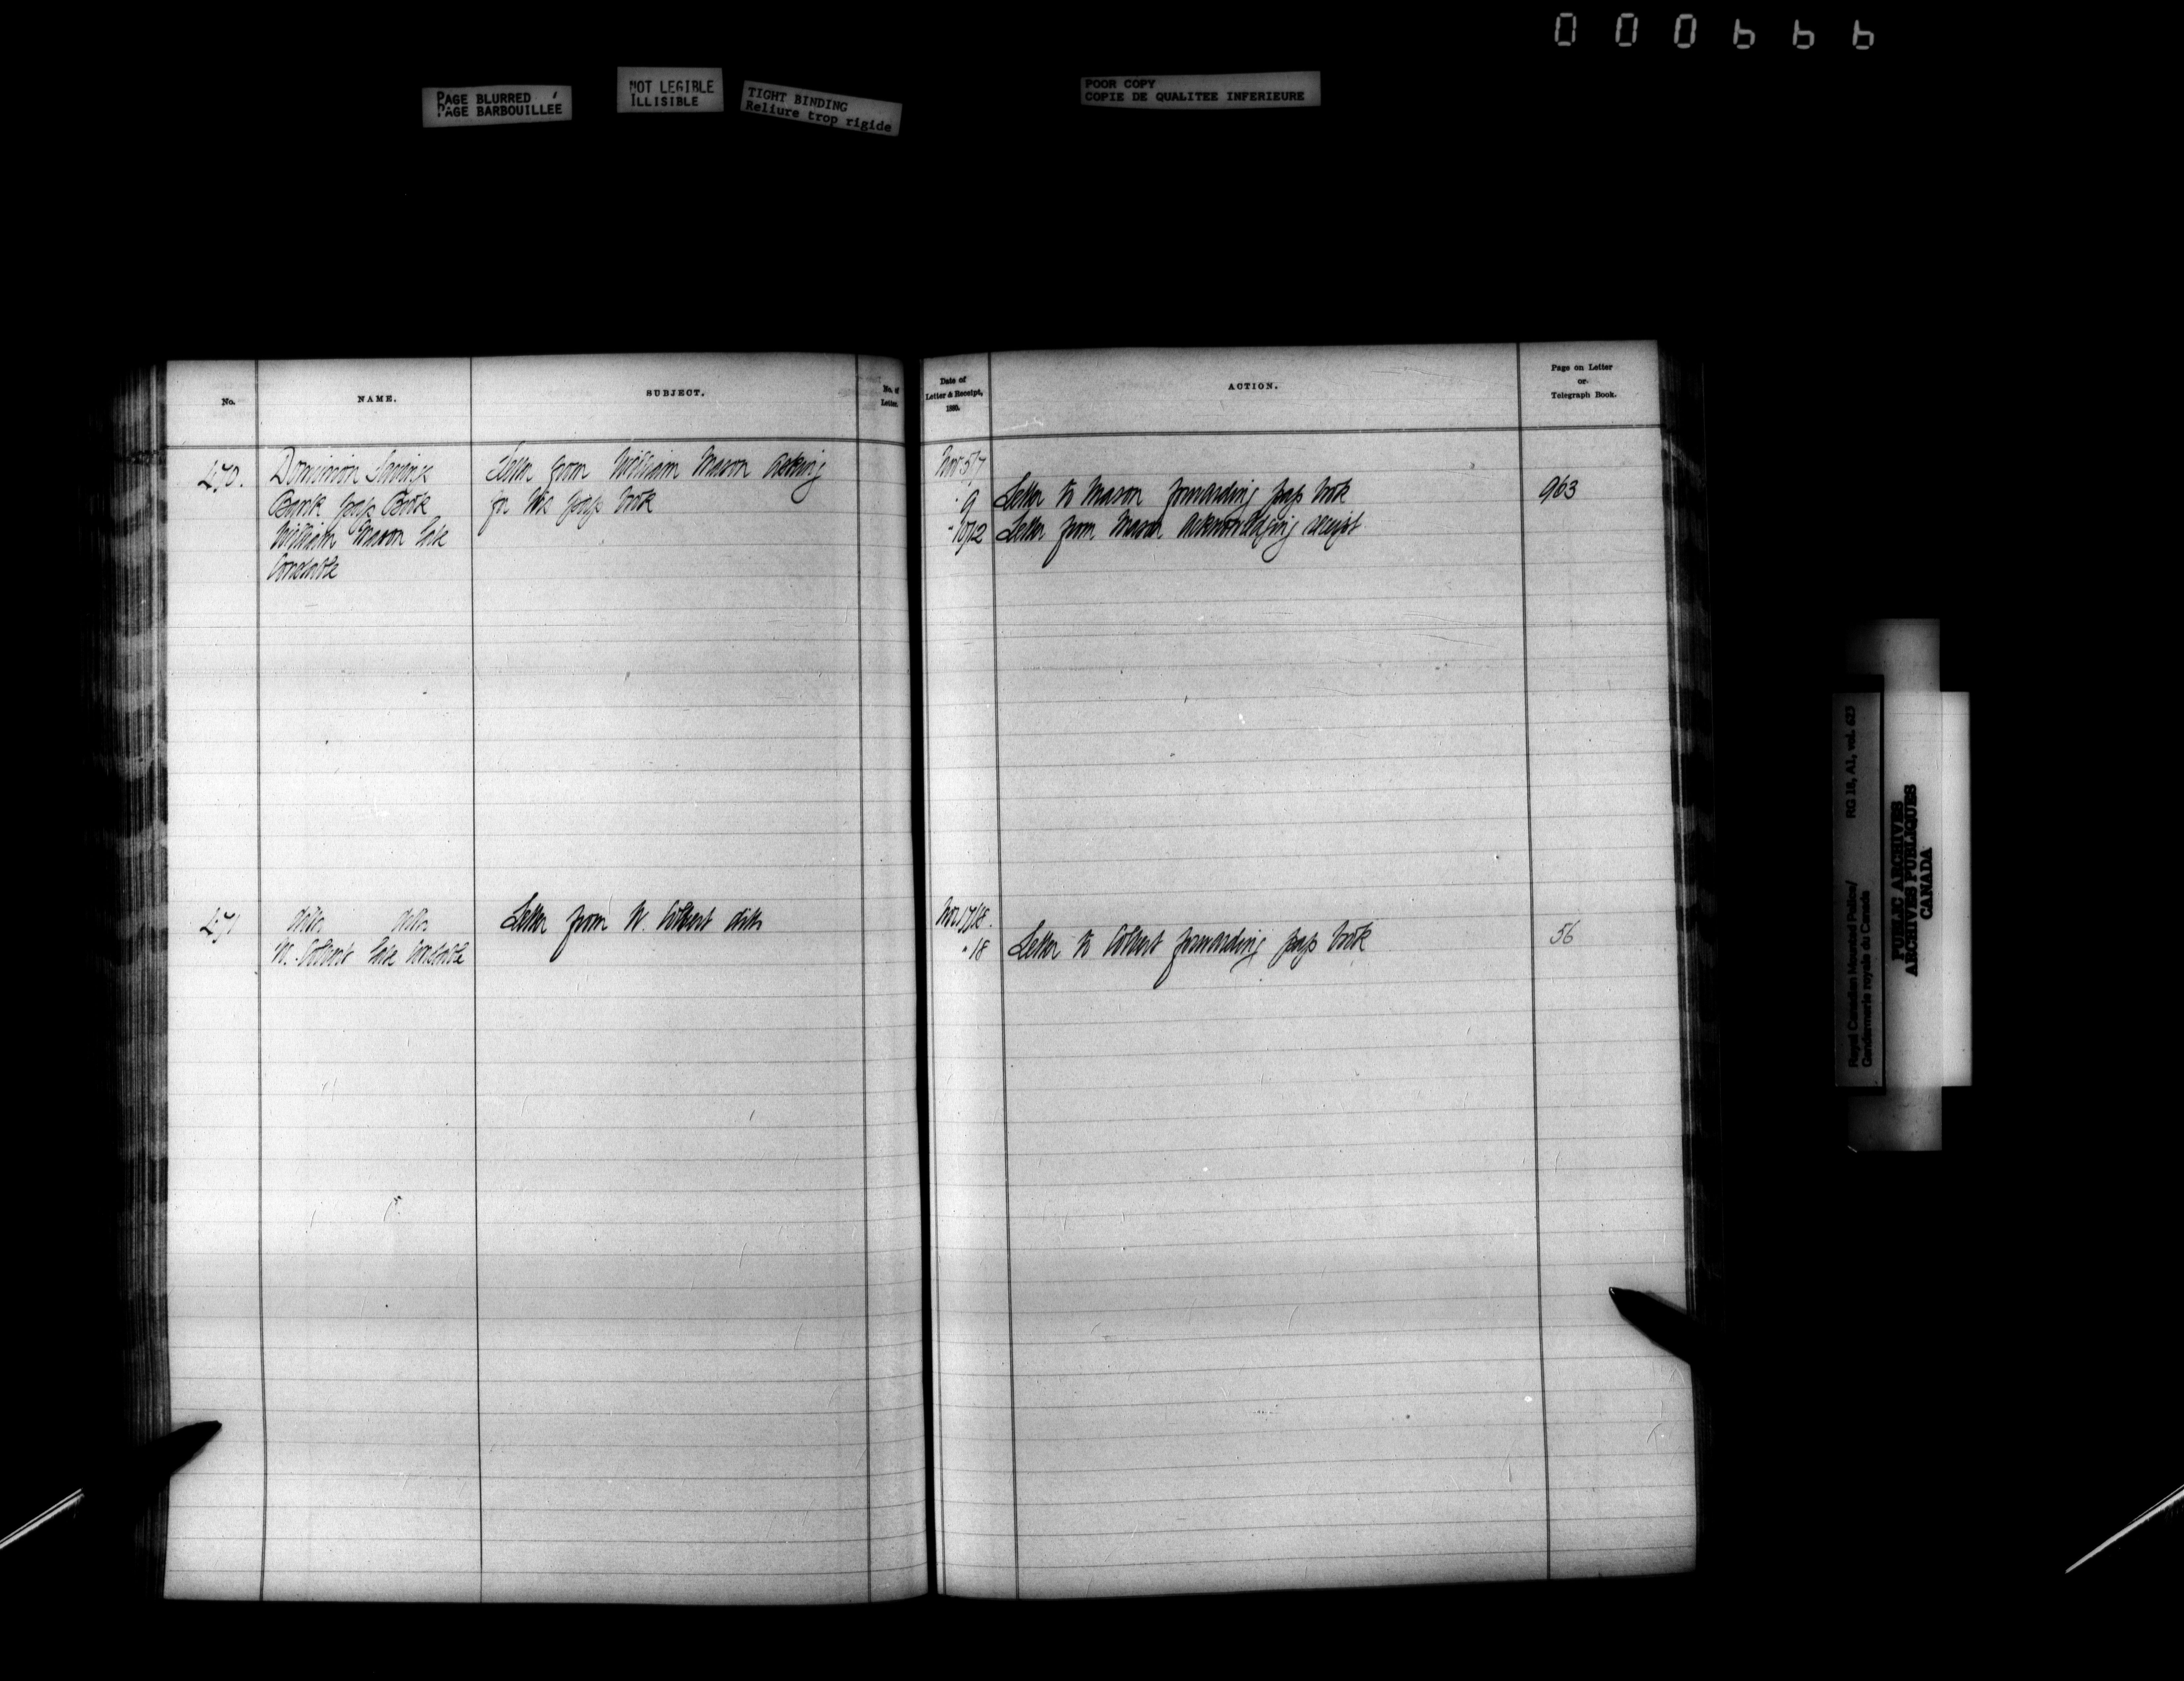 000666
PAGE BLURRED
PAGE BARBOUILLÉE
NOT LEGIBLE
ILLISIBLE
TIGHT BINDING
Reliure trop rigide
POOR COPY
COPIE DE QUALITEE INFERIEURE
No.
NAME.
SUBJECT.
No. of
Letter.
470.
Dominion Savings
Bank pass Book
William Mason late
Constable
Letter from William Mason asking
for his pass book
471
ditto ditto
W. Colbert late Constable
Letter from W. Colbert ditto
Date of
Letter & Receipt,
1880.
ACTION.
Page on Letter
or
Telegraph Book.
Nov 5/7
" 9 Letter to Mason forwarding pass book 963
" 10/12 Letter from Mason acknowledging receipt
Nov. 17/18.
" 18 Letter to Colbert forwarding pass book 56
Royal Canadian Mounted Police/
Gendarmerie royale du Canada
RG 18, A1, vol. 623
PUBLIC ARCHIVES
ARCHIVES PUBLIQUES
CANADA